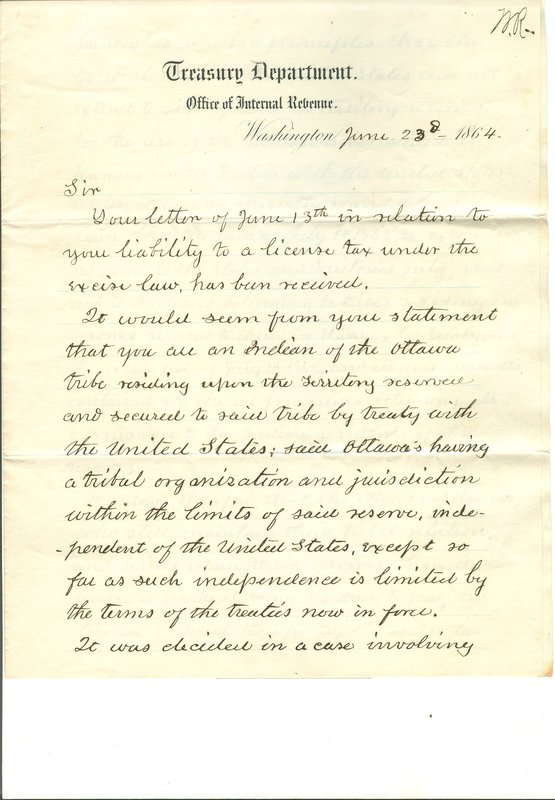 W.R.
Treasury Department.
Office of Internal Revenue.
Washington June 23d 1864.
Sir
Your letter of June 13th in relation to
your liability to a license tax under the
excise law, has been received.
It would seem from your statement
that you are an Indian of the Ottawa
tribe residing upon the Territory reserved
and secured to said tribe by treaty with
the United States; said Ottawa's having
a tribal organization and jurisdiction
within the limits of said reserve, inde-
-pendent of the United States, except so
far as such independence is limited by
the terms of the treaties now in force.
It was decided in a case involving